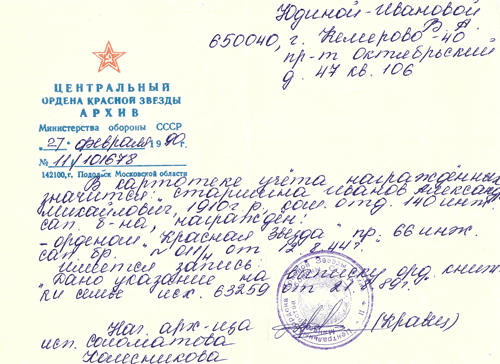 Юдиной-Ивановой
В. А.
650040, г. Кемерово-40
пр-т Октябрьский
д. 47 кв. 106
ЦЕНТРАЛЬНЫЙ
ОРДЕНА КРАСНОЙ ЗВЕЗДЫ
АРХИВ
Министерства обороны СССР
"27" февраля 1990г.
№ 11/101678
142100, г. Подольск Московской области
В картотеке учёта награждённых
значится: "старшина Иванов Александр
Михайлович, 1910г р. ком. отд. 140 инж
сап. б-на, награждён:
- орденом "Красная Звезда" пр. 66 инж.
сап. бр. №011/н от 12.8.44г."
Имеется запись:
"Дано указание на выписку орд. книж
ки семье исх. 63259 от 89г."
Нач. арх-ща (Кравец)
исп. Соломатова
Колесникова